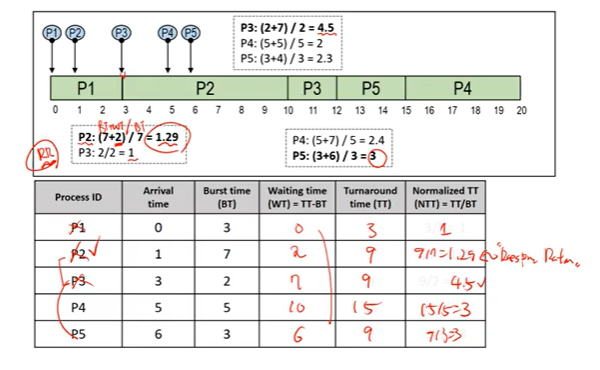 P1 P2 P3 P4 P5
P3: (2+7) / 2 = 4.5
P4: (5+5) / 5 = 2
P5: (3+4) / 3 = 2.3
P1 P2 P3 P5 P4
0 1 2 3 4 5 6 7 8 9 10 11 12 13 14 15 16 17 18 19 20
BT+WT / BT
P2: (7+2) / 7 = 1.29
P3: 2/2 = 1
RR
P4: (5+7) / 5 = 2.4
P5: (3+6) / 3 = 3
Process ID Arrival time Burst time (BT) Waiting time (WT) = TT-BT Turnaround time (TT) Normalized TT (NTT) = TT/BT
P1 0 3 0 3 1
P2 1 7 2 9 9/7=1.29
P3 3 2 7 9 4.5
P4 5 5 10 15 15/5=3
P5 6 3 6 9